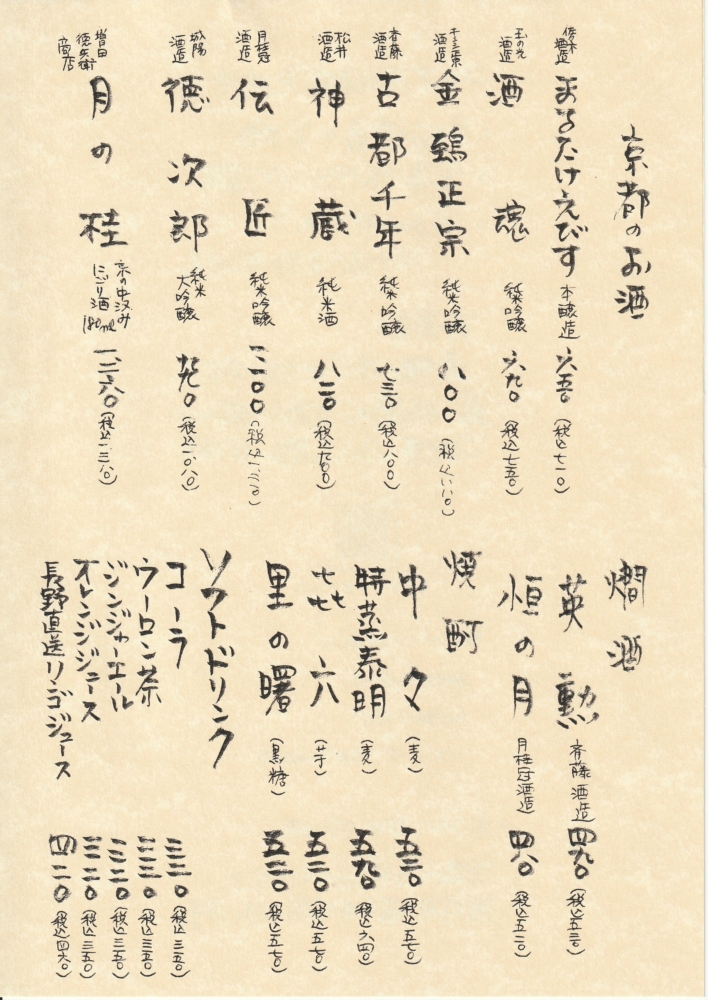 京都のお酒
佐々木酒造 まるたけえびす 本醸造 六五〇(税込七一〇)
玉乃光酒造 酒魂 純米吟醸 六九〇(税込七五〇)
酒造 金鵄正宗 純米吟醸 八〇〇
斉藤酒造 古都千年 純米吟醸 七三〇(税込八〇〇)
松井酒造 神蔵 純米酒 八二〇(税込九〇〇)
月桂冠酒造 伝匠 純米吟醸
城陽酒造 徳次郎 純米大吟醸 九九〇(税込一、〇八〇)
増田徳兵衛商店 月の桂 京の中汲みにごり酒 180ml 一、二六〇(税込一、三八〇)
燗酒
英勲 斉藤酒造 四九〇(税込五三〇)
恒の月 月桂冠酒造 四八〇(税込五二〇)
焼酎
中々(麦) 五二〇(税込五七〇)
特蒸泰明(麦) 五九〇(税込六四〇)
七七六(芋) 五二〇(税込五七〇)
里の曙(黒糖) 五二〇(税込五七〇)
ソフトドリンク
コーラ 三二〇(税込三五〇)
ウーロン茶 三二〇(税込三五〇)
ジンジャーエール 三二〇(税込三五〇)
オレンジジュース 三二〇(税込三五〇)
長野直送リンゴジュース 四二〇(税込四六〇)